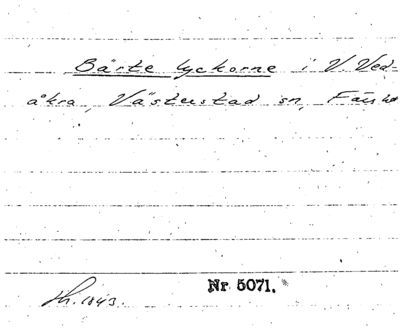 Bärte lyckorne i V. Ved-
åkra, Västerstad sn, Färs hd
Nr 5071.
1843.